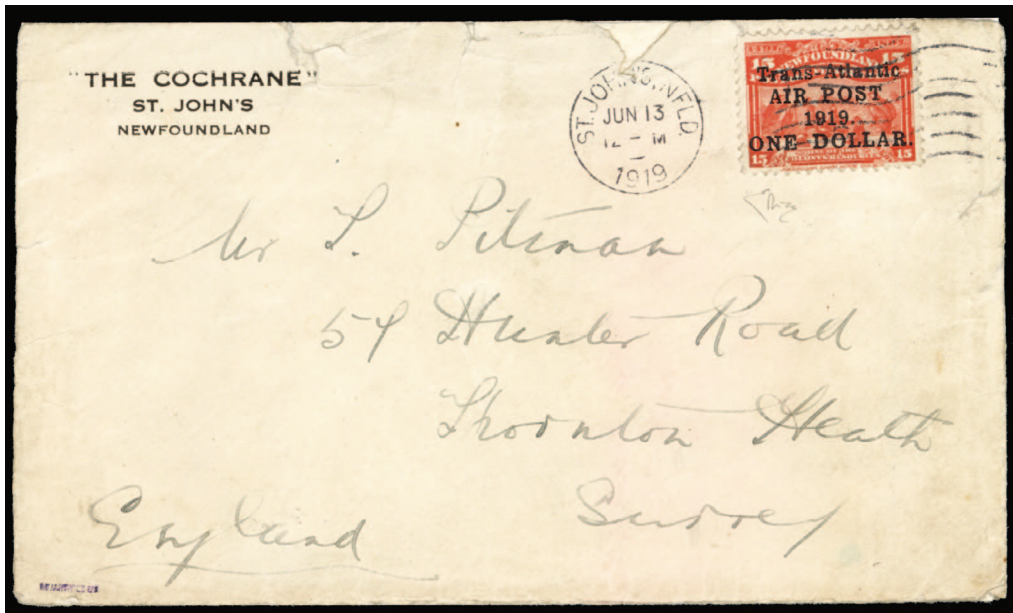 "THE COCHRANE"
ST. JOHN'S
NEWFOUNDLAND
ST. JOHN'S, NFLD.
JUN 13
12 - M
1919
15 NEWFOUNDLAND 15
Trans-Atlantic
AIR POST
1919.
ONE DOLLAR.
15 15
Mr L. Pitman
Hunter Road
Thornton Heath
Surrey
England